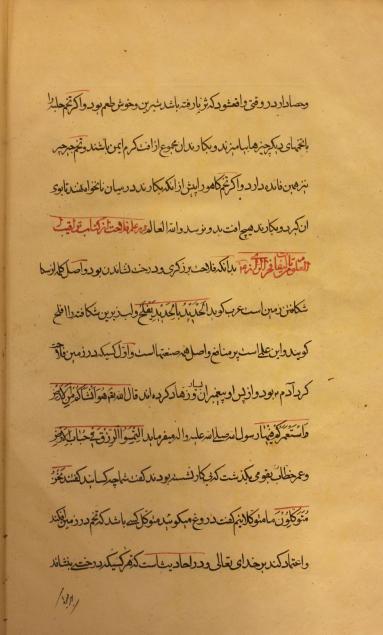 و حصاد در وقتی واقع شود که ثریا رفته باشد شیرین و خوش طعم بود و اگر تخم حلبه را
با تخمهای دیگر چیزها بیامیزند و بکارند آن مجموع از آفت کرم ایمن باشند و تخم جرجیر
نیز همین فایده دارد و اگر تخم کاهو را پیش از آنکه بکارند در میان نانخواه نهند تا بوی
آن گیرد و بکارند هیچ آفت بدو نرسد والله اعلم علم فلاحت از کتاب
بدانکه فلاحت برزگری و درخت نشاندن بود و اصل کلمه از
شکافتن زمین است عرب گوید الحدید بالحدید یفلح و لب زیرین شکافته را افلح
گویند و این علمی است پر منافع و اصل همه صنعتها است و اول کسیکه در زمین
کرد آدم بود و از پس او پیغمبران و زهاد کرده اند قال الله تعالی هو انشأکم من الارض
و استعمرکم فیها رسول الله صلی الله علیه و آله میفرماید التمسوا الرزق فی خبایا الارض
و عمر خطاب بقومی بگذشت که بی کار نشسته بودند گفت شما چه کسانید گفتند نحن
متوکلون ما متوکلانیم گفت دروغ میگویید متوکل کسی باشد که تخم در زمین افکند
و اعتماد کند بر خدای تعالی و در احادیث است که هر کسیکه درختی بنشاند